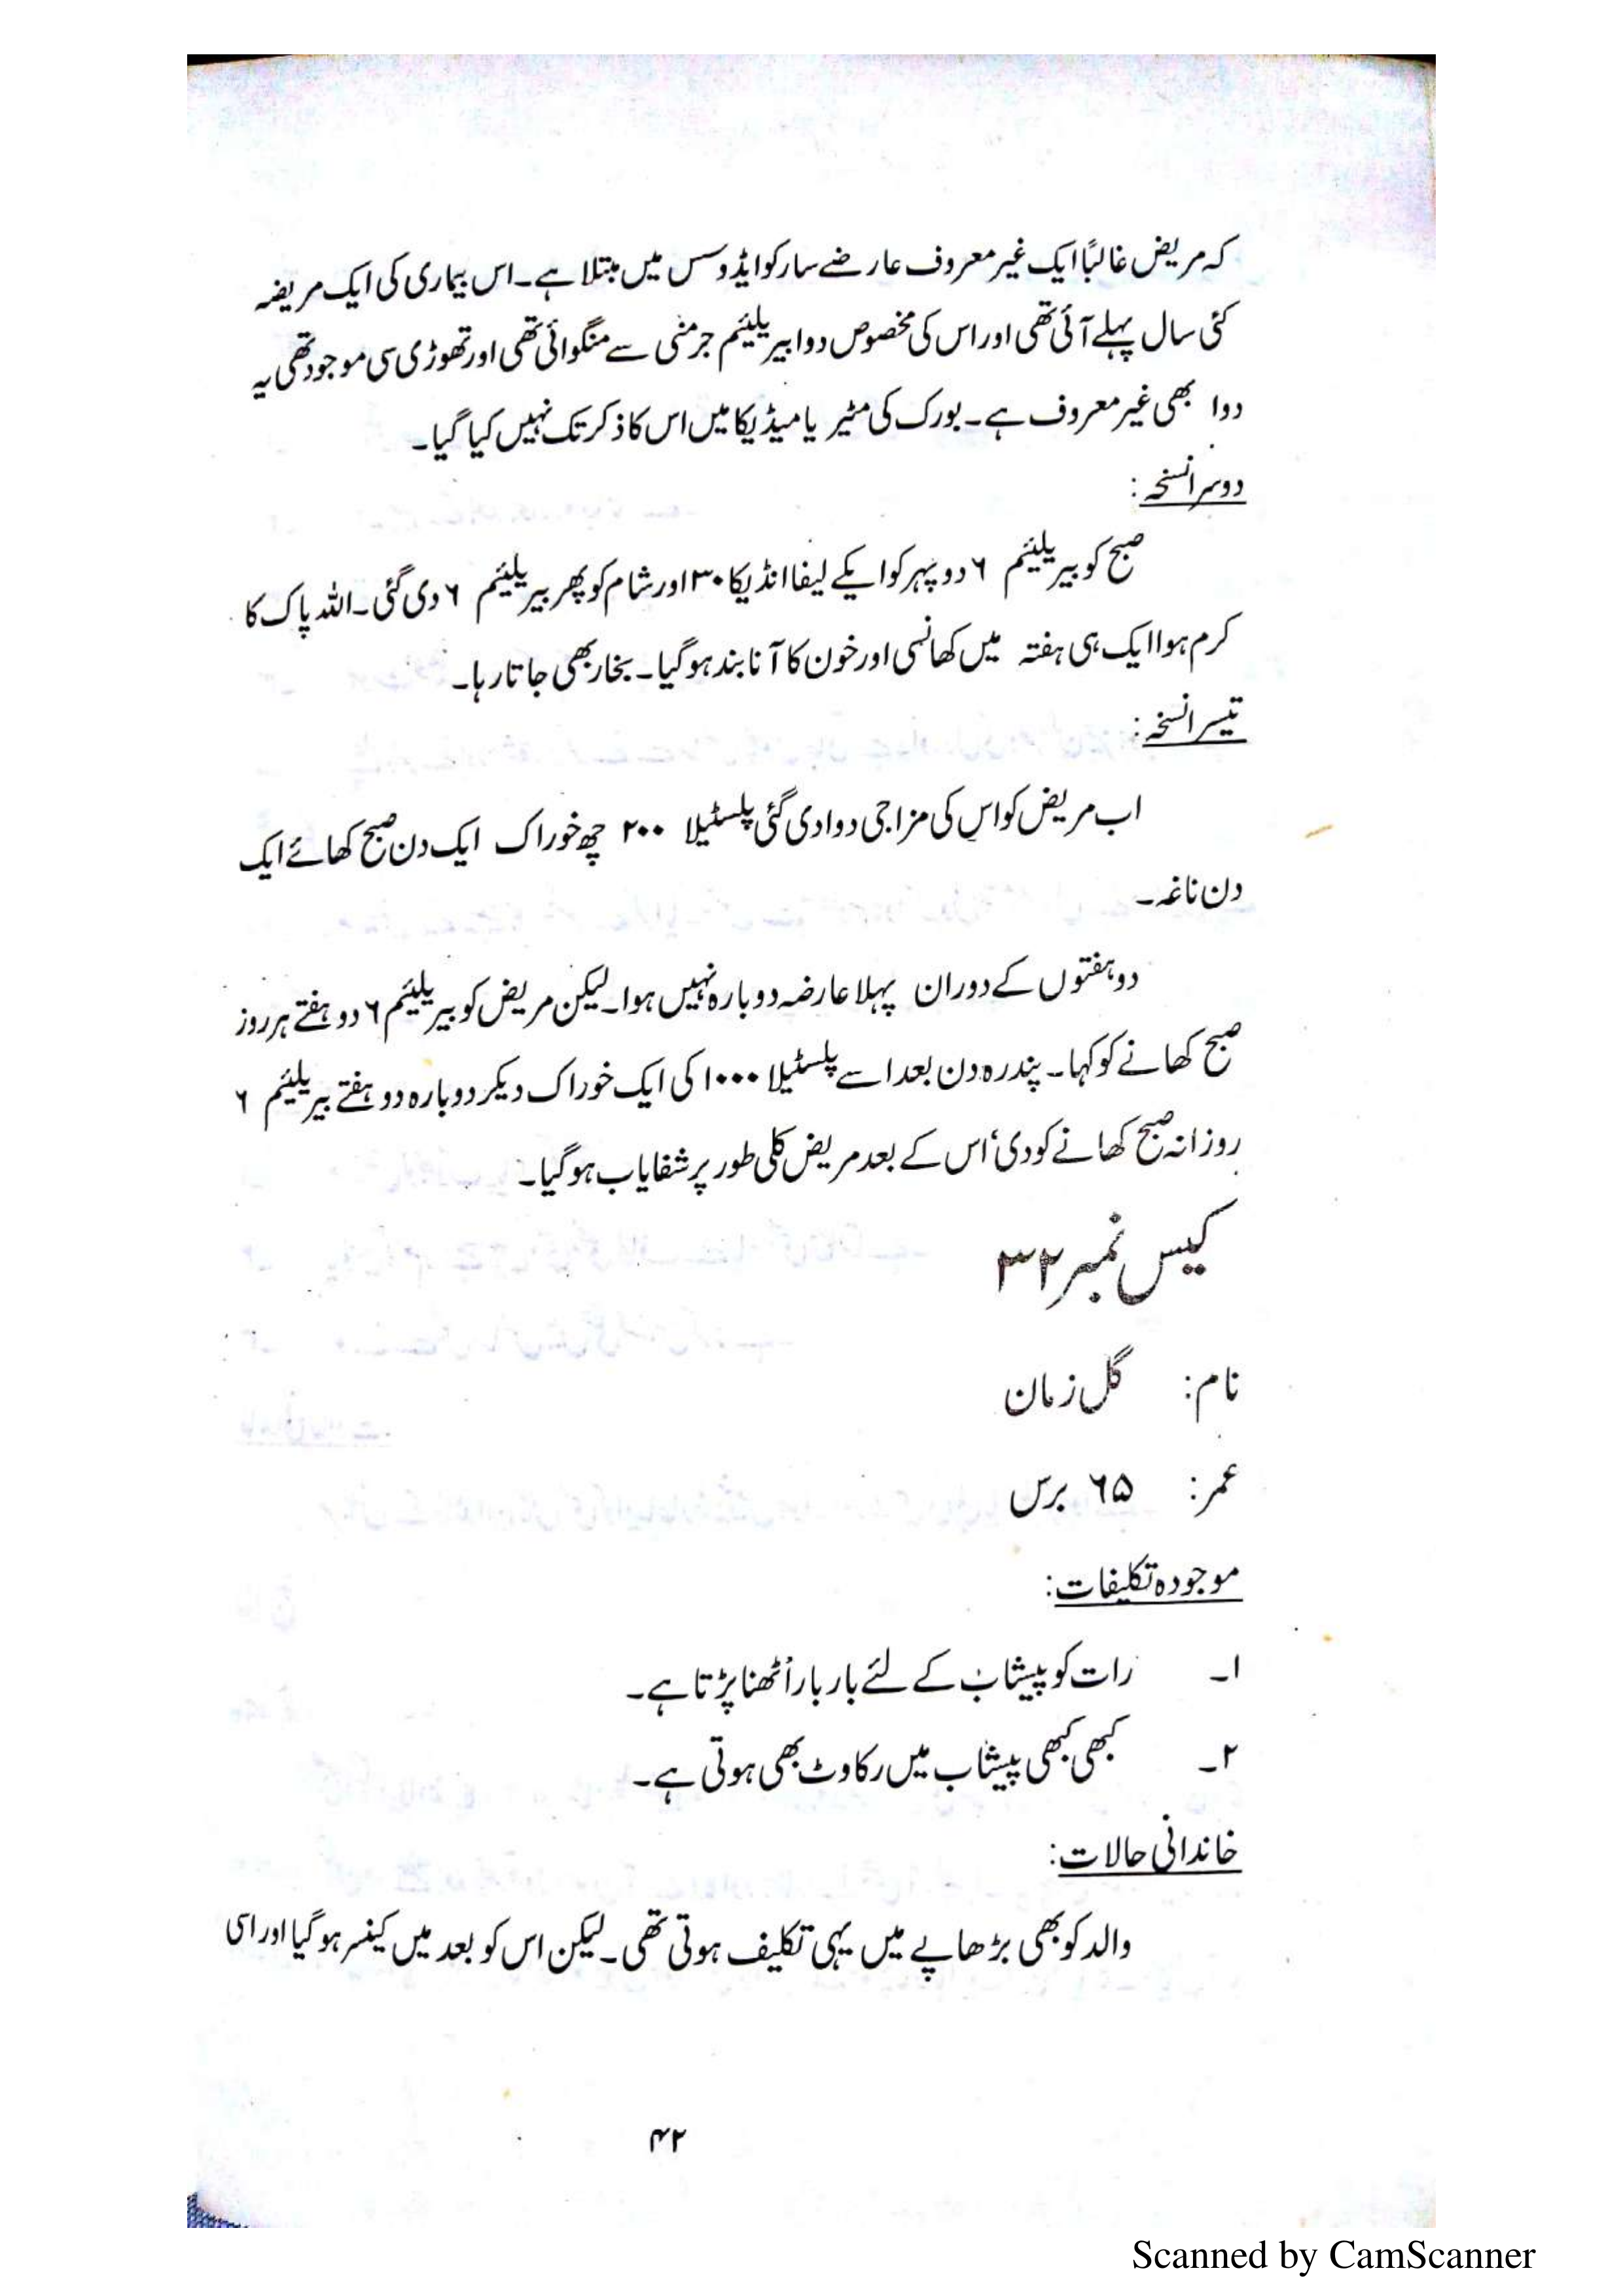 کہ مریض غالباً ایک غیر معروف عارضے سارکوایڈوسس میں مبتلا ہے۔ اس بیماری کی ایک مریضہ
کئی سال پہلے آئی تھی اور اس کی مخصوص دوا بیریلیئم جرمنی سے منگوائی تھی اور تھوڑی سی موجود تھی یہ
دوا بھی غیر معروف ہے۔ بورک کی مٹیریا میڈیکا میں اس کا ذکر تک نہیں کیا گیا۔
دوسرا نسخہ:
صبح کو بیریلیئم ۶ دوپہر کو ایکے لیفا انڈیکا ۳۰ اور شام کو پھر بیریلیئم ۶ دی گئی۔ اللہ پاک کا
کرم ہوا ایک ہی ہفتہ میں کھانسی اور خون کا آنا بند ہو گیا۔ بخار بھی جاتا رہا۔
تیسرا نسخہ:
اب مریض کو اس کی مزاجی دوا دی گئی پلسٹیلا ۲۰۰ چھ خوراک ایک دن صبح کھائے ایک
دن ناغہ۔
دو ہفتوں کے دوران پہلا عارضہ دوبارہ نہیں ہوا۔ لیکن مریض کو بیریلیئم ۶ دو ہفتے ہر روز
صبح کھانے کو کہا۔ پندرہ دن بعد اسے پلسٹیلا ۱۰۰۰ کی ایک خوراک دیکر دوبارہ دو ہفتے بیریلیئم ۶
روزانہ صبح کھانے کو دی، اس کے بعد مریض کلی طور پر شفایاب ہو گیا۔
کیس نمبر ۳۲
نام: گل زمان
عمر: ۶۵ برس
موجودہ تکلیفات:
۱۔ رات کو پیشاب کے لئے بار بار اُٹھنا پڑتا ہے۔
۲۔ کبھی کبھی پیشاب میں رکاوٹ بھی ہوتی ہے۔
خاندانی حالات:
والد کو بھی بڑھاپے میں یہی تکلیف ہوتی تھی۔ لیکن اس کو بعد میں کینسر ہو گیا اور اسی
۴۲
Scanned by CamScanner